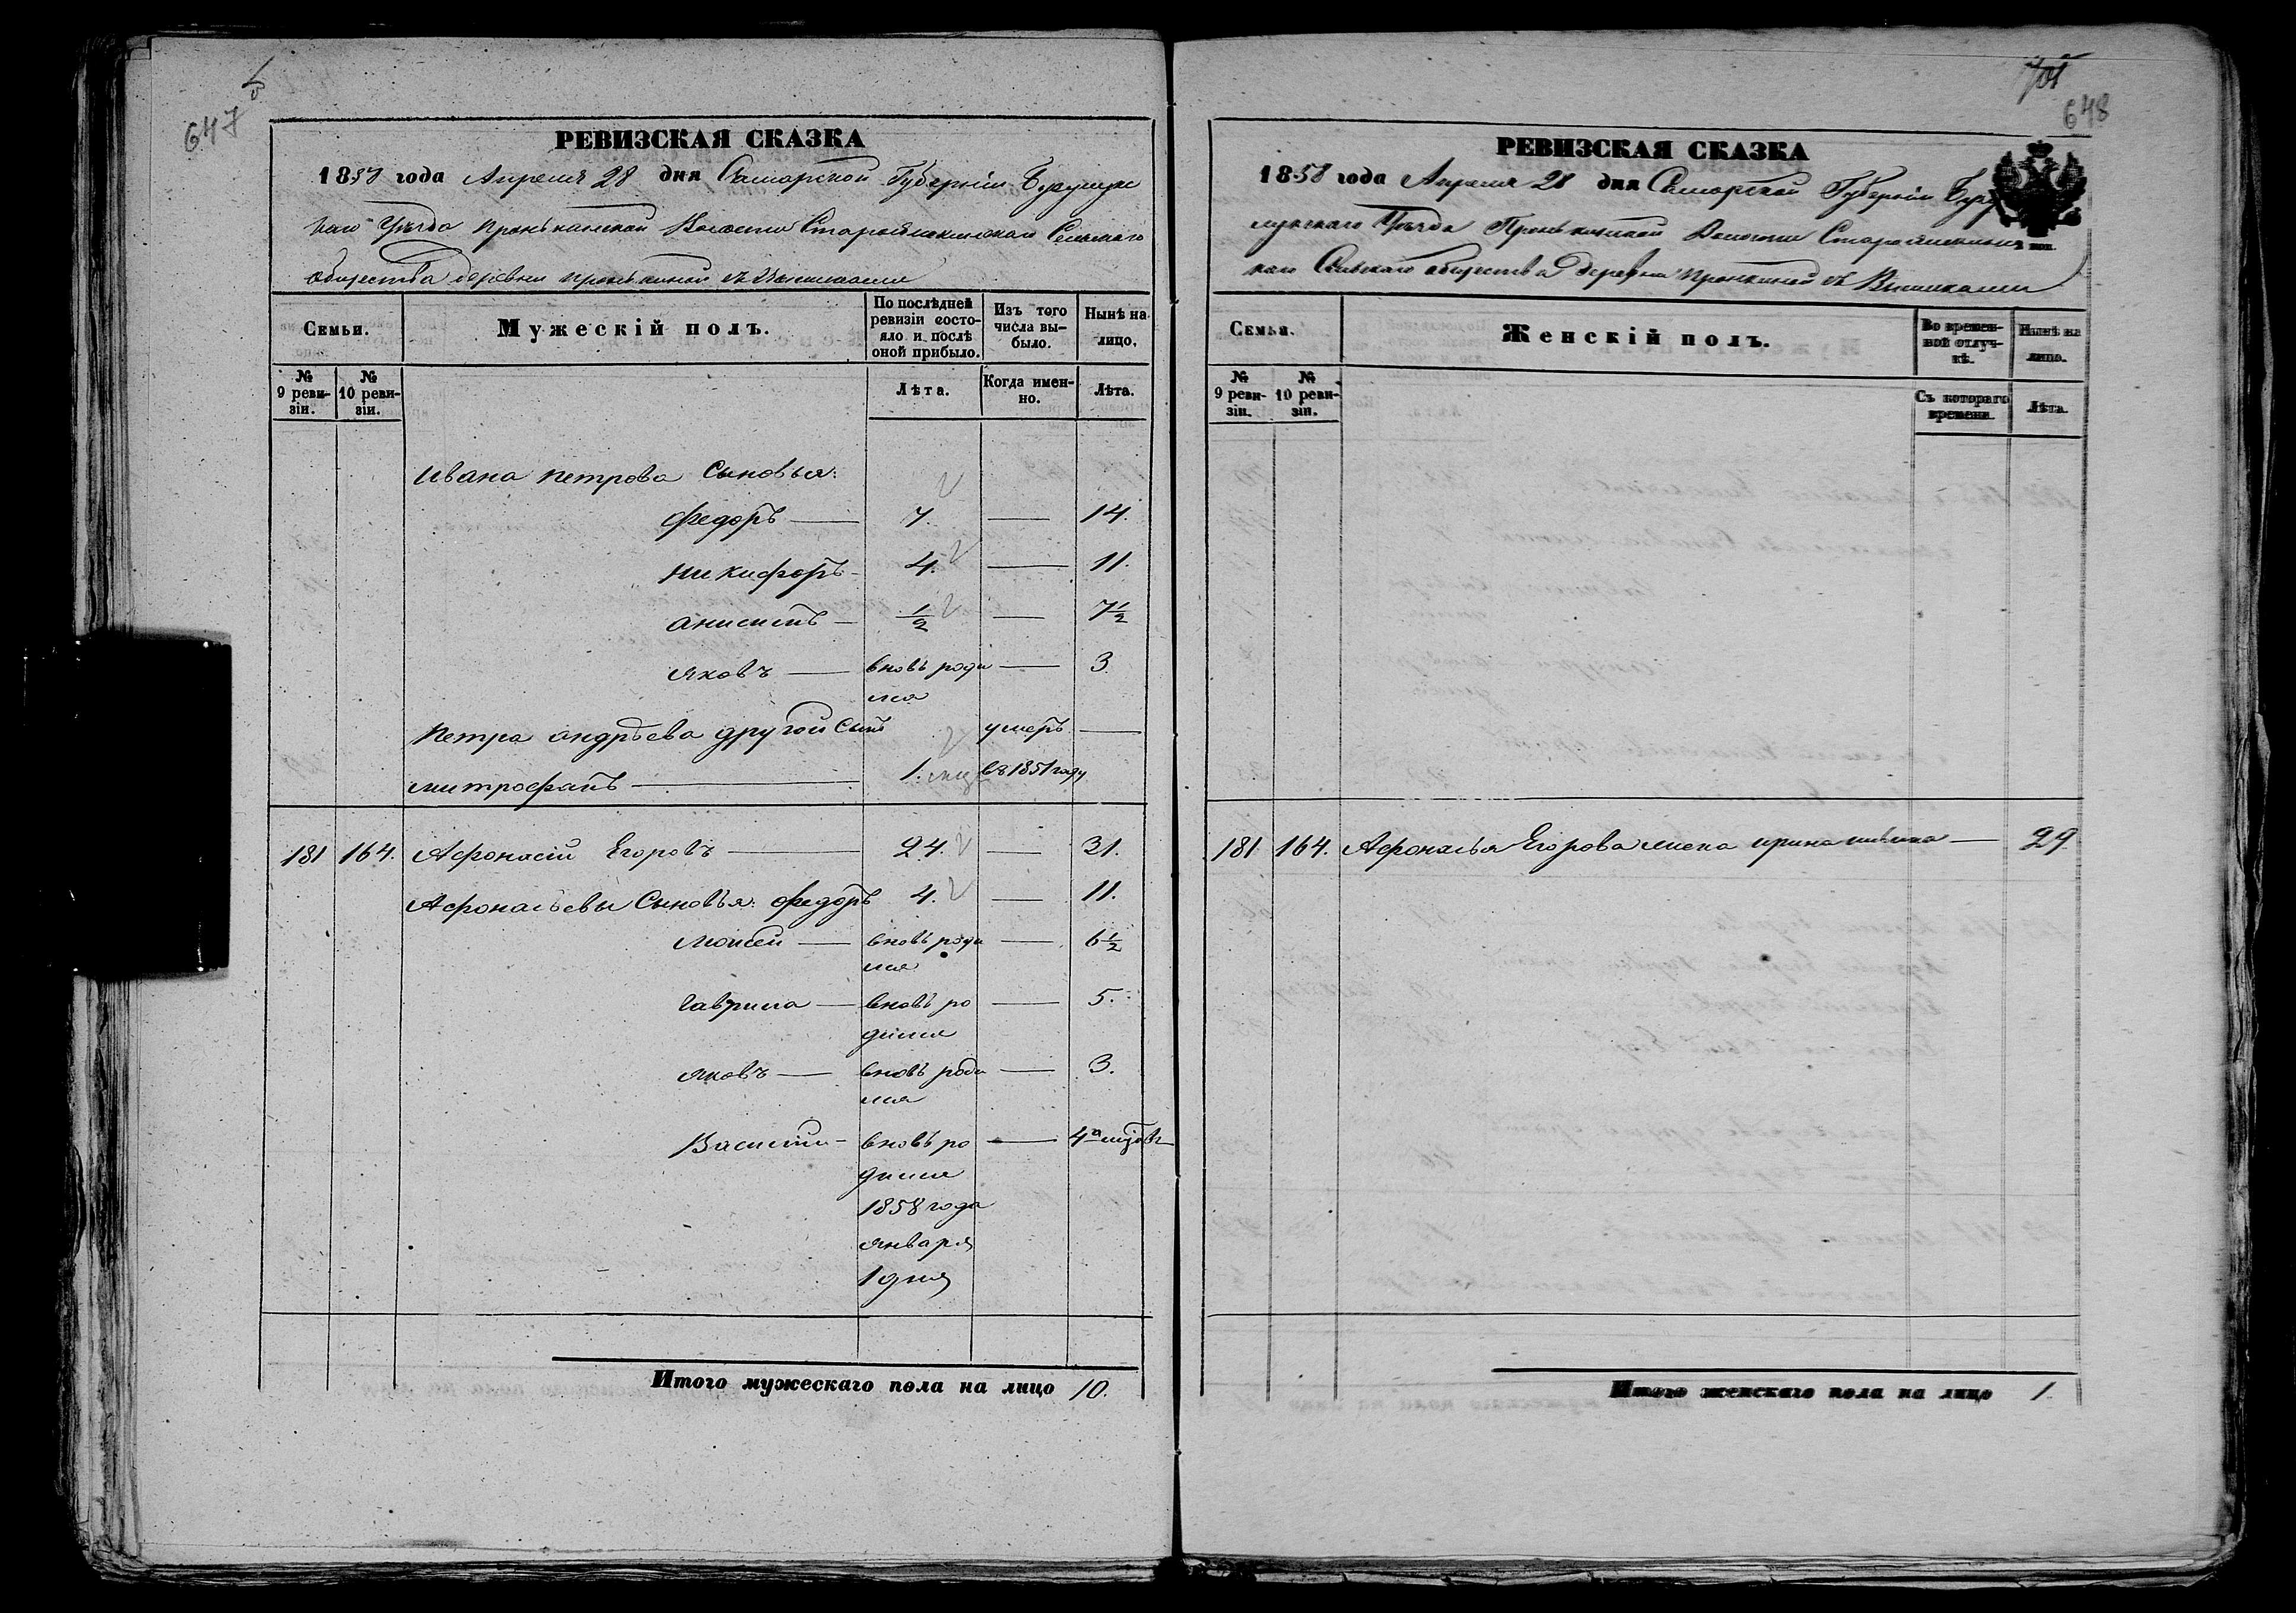 647
РЕВИЗСКАЯ СКАЗКА
1858 года Апреля 28 дня Самарской Губернiи Бугурус
каго Уѣзда Пронькинской Волости Сельскаго
общества деревни Пронькиной
Семьи.
Мужескiй полъ.
По послѣдней ревизiи состояло и послѣ оной прибыло.
Изъ того числа выбыло.
Нынѣ на лицо.
№ 9 ревизiи.
№ 10 ревизiи.
Лѣта.
Когда именно.
Лѣта.
Ивана Петрова Сыновья:
Федоръ — 7. — 14.
Никифоръ — 4. — 11.
Анисимъ — 1/2 — 7 1/2
Яковъ — вновь роди — 3.
лся
Петра Андрѣева другой Сынъ умеръ —
Митрофанъ — 1. въ 1851 году
181 164. Афонасiй Егоровъ — 24. — 31.
Афонасьевы Сыновья: Федоръ 4. — 11.
Моисей — вновь роди — 6 1/2
лся
Гаврила — вновь ро — 5.
дился
Яковъ — вновь роди — 3.
лся
Василiй — вновь ро — 4
дился
1858 года
Января
1 дня
Итого мужескаго пола на лицо 10.
648
РЕВИЗСКАЯ СКАЗКА
1858 года Апреля 28 дня Самарской Губернiи Бугу
русскаго Уѣзда Пронькинской Волости
каго Сельскаго общества деревни Пронкиной
Семьи.
Женскiй полъ.
Во временной отлучкѣ.
Нынѣ на лицо.
№ 9 ревизiи.
№ 10 ревизiи.
Съ котораго времени.
Лѣта.
181 164. Афонасья Егорова жена Ирина — 29
Итого женскаго пола на лицо 1.